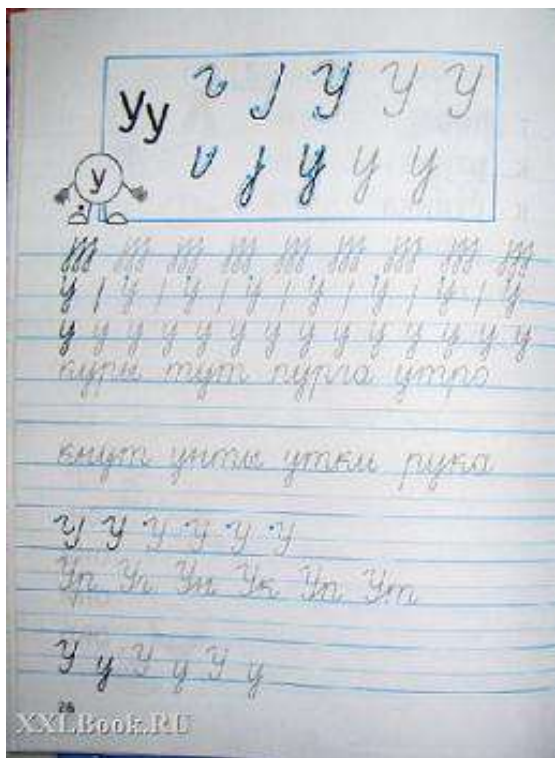 Уу У У У
у у у
у
У | У | У | У | У | У | У | У
у у у у у у у у у у у у у у
куры тут пурга утро
кнут унты утки рука
У У У У У У
Ур Уч Ун Ук Уп Ут
У у У у У у
26
XXLBook.RU